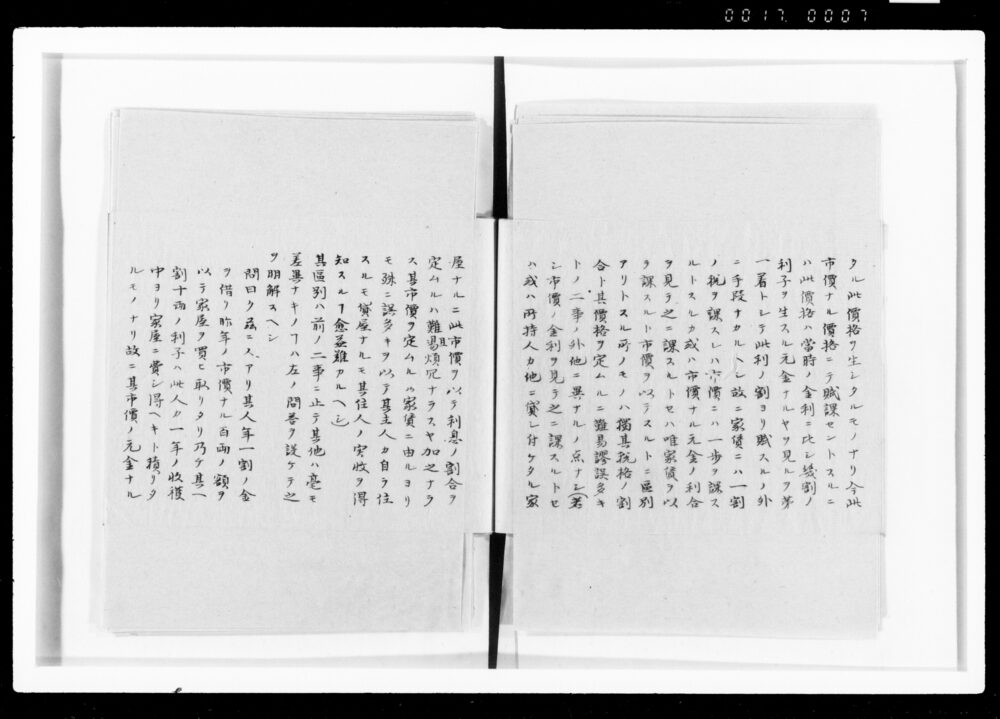 0017. 0007
タル此價格ヲ生シタルモノナリ今此
市價ナル價格ニテ賦課セントスルニ
ハ此價格ハ當時ノ金利ニ比シ幾割ノ
利子ヲ生スル元金ナルヤヲ見ルヲ第
一着トシテ此利ノ割ヨリ賦スルノ外
ニ手段ナカルヘシ故ニ家賃ニハ一割
ノ税ヲ課スレハ市價ニハ一歩ヲ課ス
ルトスルカ或ハ市價ナル元金ノ利合
ヲ見テ之ニ課スルトセハ唯家賃ヲ以
テ課スルト市價ヲ以テスルトニ區別
アリトスル所ノモノハ獨其税格ノ割
合ト其價格ヲ定ムルニ難易謬誤多キ
トノ二事ノ外他ニ異ナルノ点ナシ(若
シ市價ノ金利ヲ見テ之ニ課スルトセ
ハ或ハ所持人カ他ニ貸シ付ケタル家
屋ナルニ此市價ヲ以テ利息ノ割合ヲ
定ムルハ難易煩冗ナラスヤ加之ナラ
ス其市價ヲ定ムルハ家賃ニ由ルヨリ
モ殊ニ誤多キヲ以テ其主人カ自ラ住
スルモ貸屋ナルモ其住人ノ実收ヲ得
知スルヿ愈益難カルヘシ)
其區別ハ前ノ二事ニ止テ其他ハ毫モ
差異ナキノヿハ左ノ問答ヲ設ケテ之
ヲ明解スヘシ
問曰ク茲ニ人アリ其人年一割ノ金
ヲ借リ昨年ノ市價ナル百両ノ額ヲ
以テ家屋ヲ買ヒ取リタリ乃チ其一
割十両ノ利子ハ此人カ一年ノ收獲
中ヨリ家屋ニ費シ得ヘキト積リタ
ルモノナリ故ニ其市價ノ元金ナル